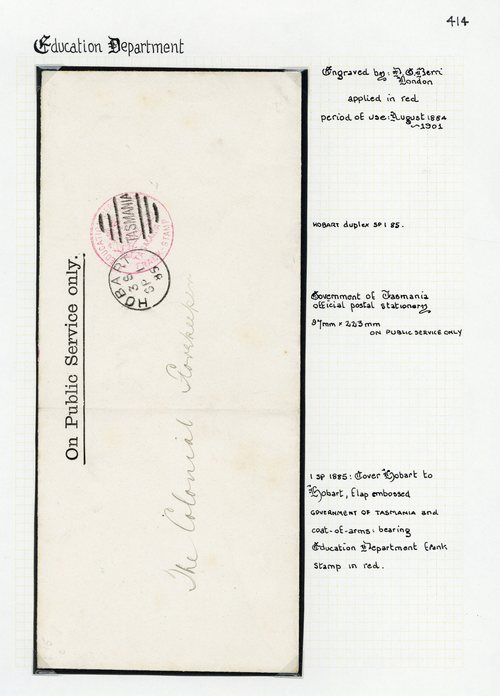 414
Education Department
Engraved by: De Gerri
London
applied in red
period of use: August 1884
~1901
HOBART duplex SP 1 85.
Government of Tasmania
official postal stationery
97mm x 223mm
ON PUBLIC SERVICE ONLY
1 SP 1885: Cover Hobart to
Hobart, flap embossed
GOVERNMENT OF TASMANIA and
coat-of-arms: bearing
Education Department frank
stamp in red.
On Public Service only.
The Colonial Storekeeper
TASMANIA
EDUCATION
FRANK STAMP
HOBART
SP
85